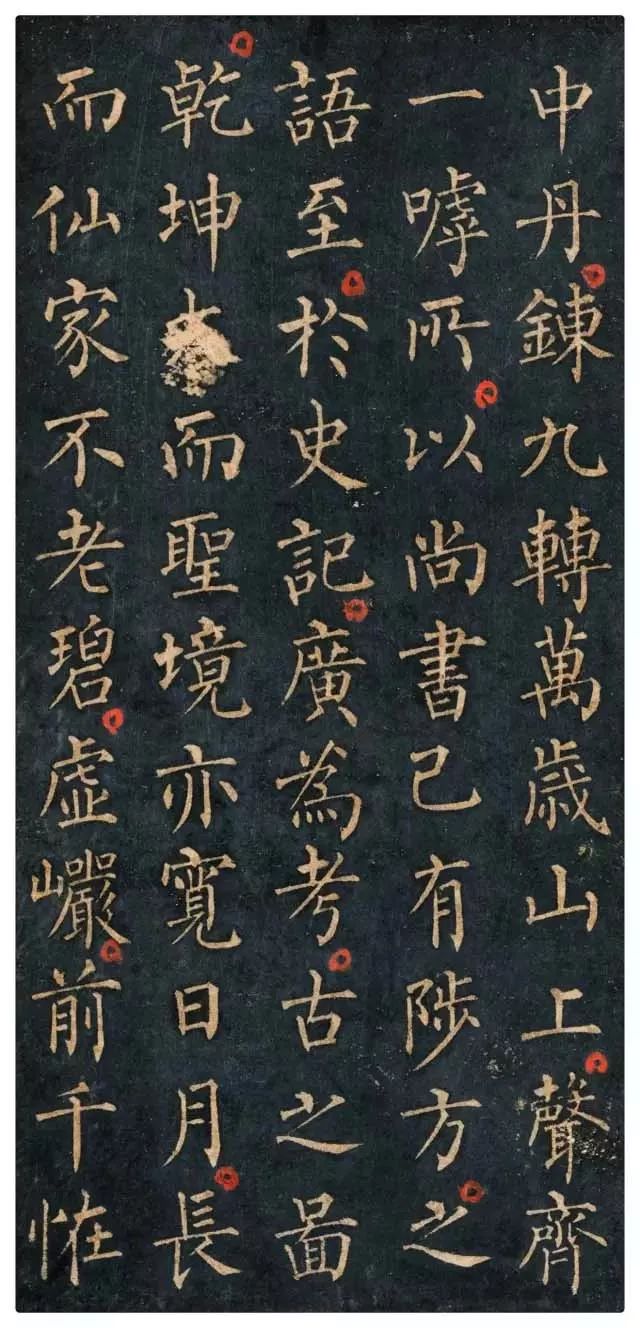 中丹鍊九轉萬歳山上聲齊
一嘑所以尚書已有陟方之
語至於史記廣為考古之啚
乾坤而聖境亦寬日月長
而仙家不老碧虛巗前千恠